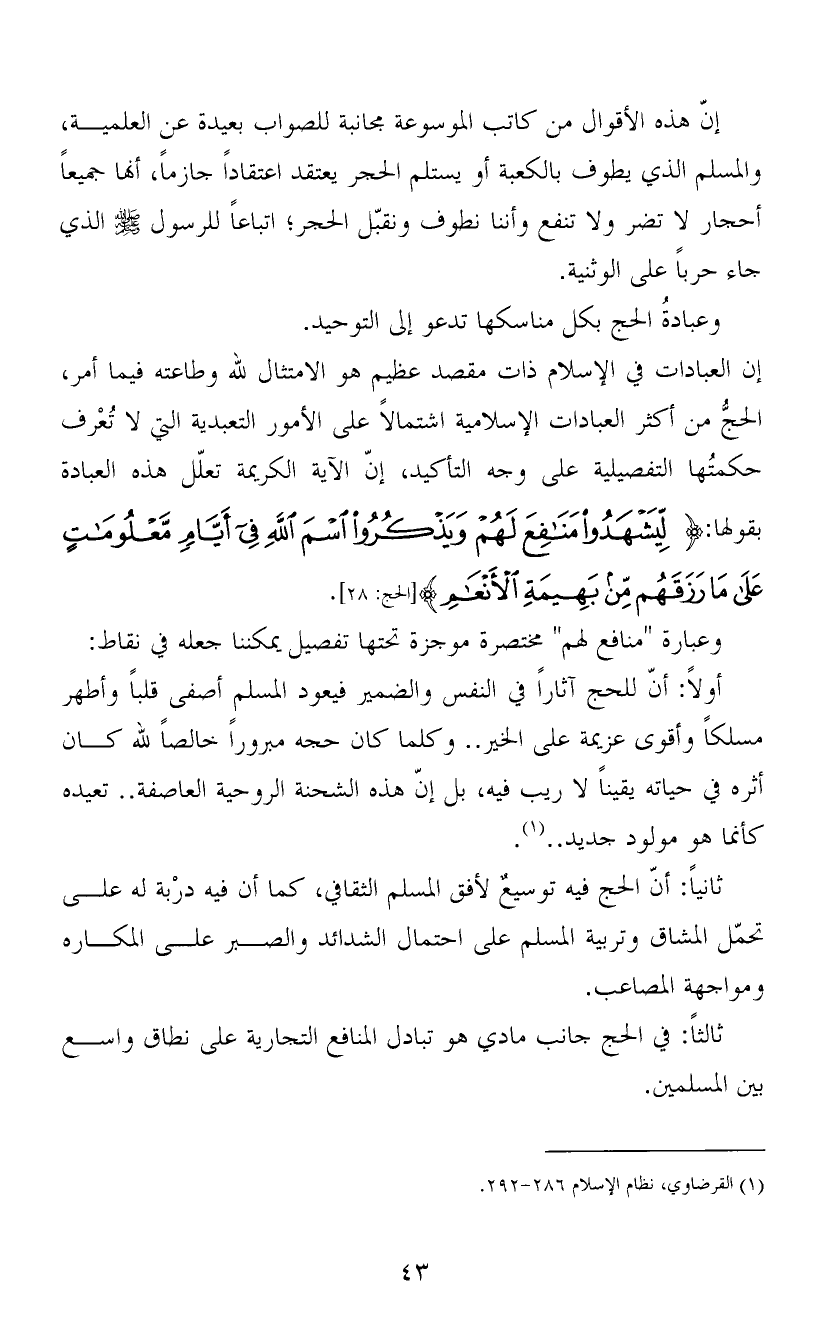 إنّ هذه الأقوال من كاتب الموسوعة مجانبة للصواب بعيدة عن العلميـــة،
والمسلم الذي يطوف بالكعبة أو يستلم الحجر يعتقد اعتقاداً جازماً، أنها جميعاً
أحجار لا تضر ولا تنفع وأننا نطوف ونقبّل الحجر؛ اتباعاً للرسول ﷺ الذي
جاء حرباً على الوثنية.
وعبادةُ الحج بكل مناسكها تدعو إلى التوحيد.
إن العبادات في الإسلام ذات مقصد عظيم هو الامتثال لله وطاعته فيما أمر،
الحجُّ من أكثر العبادات الإسلامية اشتمالاً على الأمور التعبدية التي لا تُعْرف
حكمتُها التفصيلية على وجه التأكيد، إنّ الآية الكريمة تعلّل هذه العبادة
بقولها:﴿ لِّيَشْهَدُوا۟ مَنَـٰفِعَ لَهُمْ وَيَذْكُرُوا۟ ٱسْمَ ٱللَّهِ فِىٓ أَيَّامٍ مَّعْلُومَـٰتٍ
عَلَىٰ مَا رَزَقَهُم مِّنۢ بَهِيمَةِ ٱلْأَنْعَـٰمِ ﴾[الحج: ٢٨].
وعبارة "منافع لهم" مختصرة موجزة تحتها تفصيل يمكننا جعله في نقاط:
أولاً: أنّ للحج آثاراً في النفس والضمير فيعود المسلم أصفى قلباً وأطهر
مسلكاً وأقوى عزيمة على الخير.. وكلما كان حجه مبروراً خالصاً لله كـــان
أثره في حياته يقيناً لا ريب فيه، بل إنّ هذه الشحنة الروحية العاصفة.. تعيده
كأنما هو مولود جديد..(١).
ثانياً: أنّ الحج فيه توسيعٌ لأفق المسلم الثقافي، كما أن فيه درْبة له علـــى
تحمّل المشاق وتربية المسلم على احتمال الشدائد والصـــبر علـــى المكـــاره
ومواجهة المصاعب.
ثالثاً: في الحج جانب مادي هو تبادل المنافع التجارية على نطاق واســـع
بين المسلمين.
(١) القرضاوي، نظام الإسلام ٢٨٦-٢٩٢.
٤٣